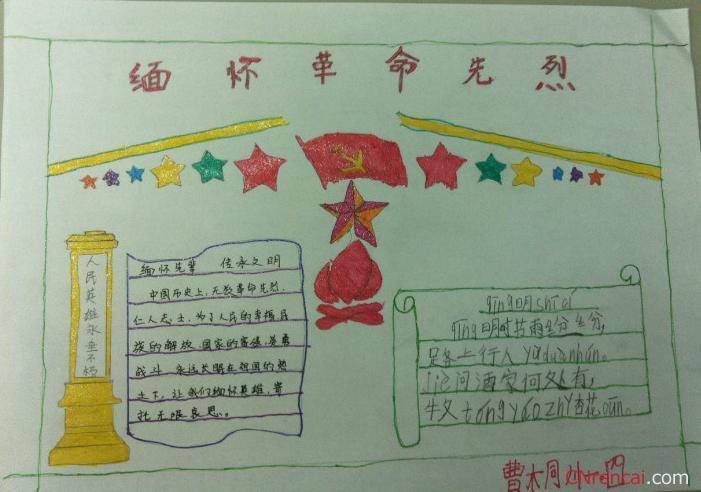 缅怀革命先烈
人民英雄永垂不朽
缅怀先辈 传承文明
中国历史上,无数革命先烈、
仁人志士,为了人民的幸福,民
族的解放、国家的富强、英勇
战斗,永远长眠在祖国的热
土下,让我们缅怀英雄,寄
托无限哀思。
qīng明
qīng明时节雨
路上行人 yùduànhún。
问酒家何处有,
牧 tóng yáo zhǐ 杏花 cūn。
曹 一四
CNrencai.com